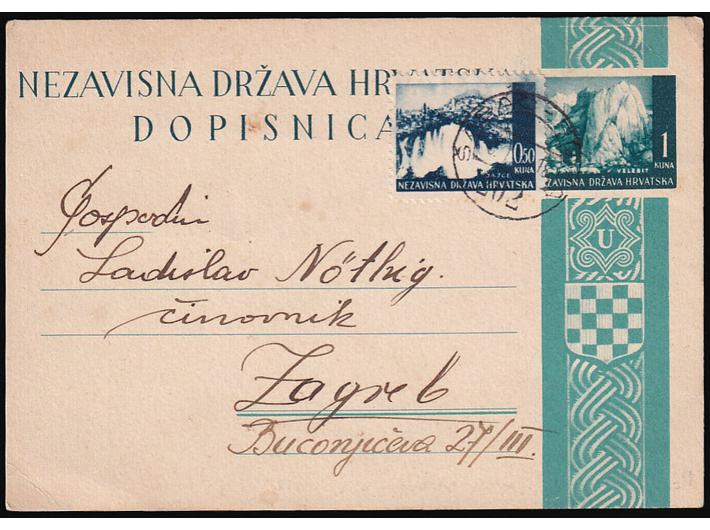 NEZAVISNA DRŽAVA HRVATSKA
DOPISNICA
0,50
KUNA
JAJCE
NEZAVISNA DRŽAVA HRVATSKA
1
KUNA
VELEBIT
ZAVISNA DRŽAVA HRVATSKA
U
Gospodin
Ladislav Nöthig.
činovnik
Zagreb
Buconjićeva 27/III.